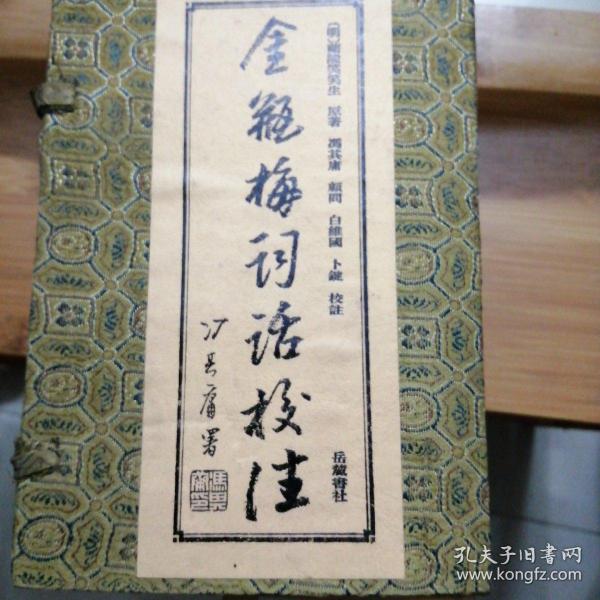 [明]蘭陵笑笑生 原著 馮其庸 顧問 白維國 卜鍵 校註
金瓶梅词话校注
冯其庸署
馮其庸印
岳麓書社
孔夫子旧书网
www.kongfz.com